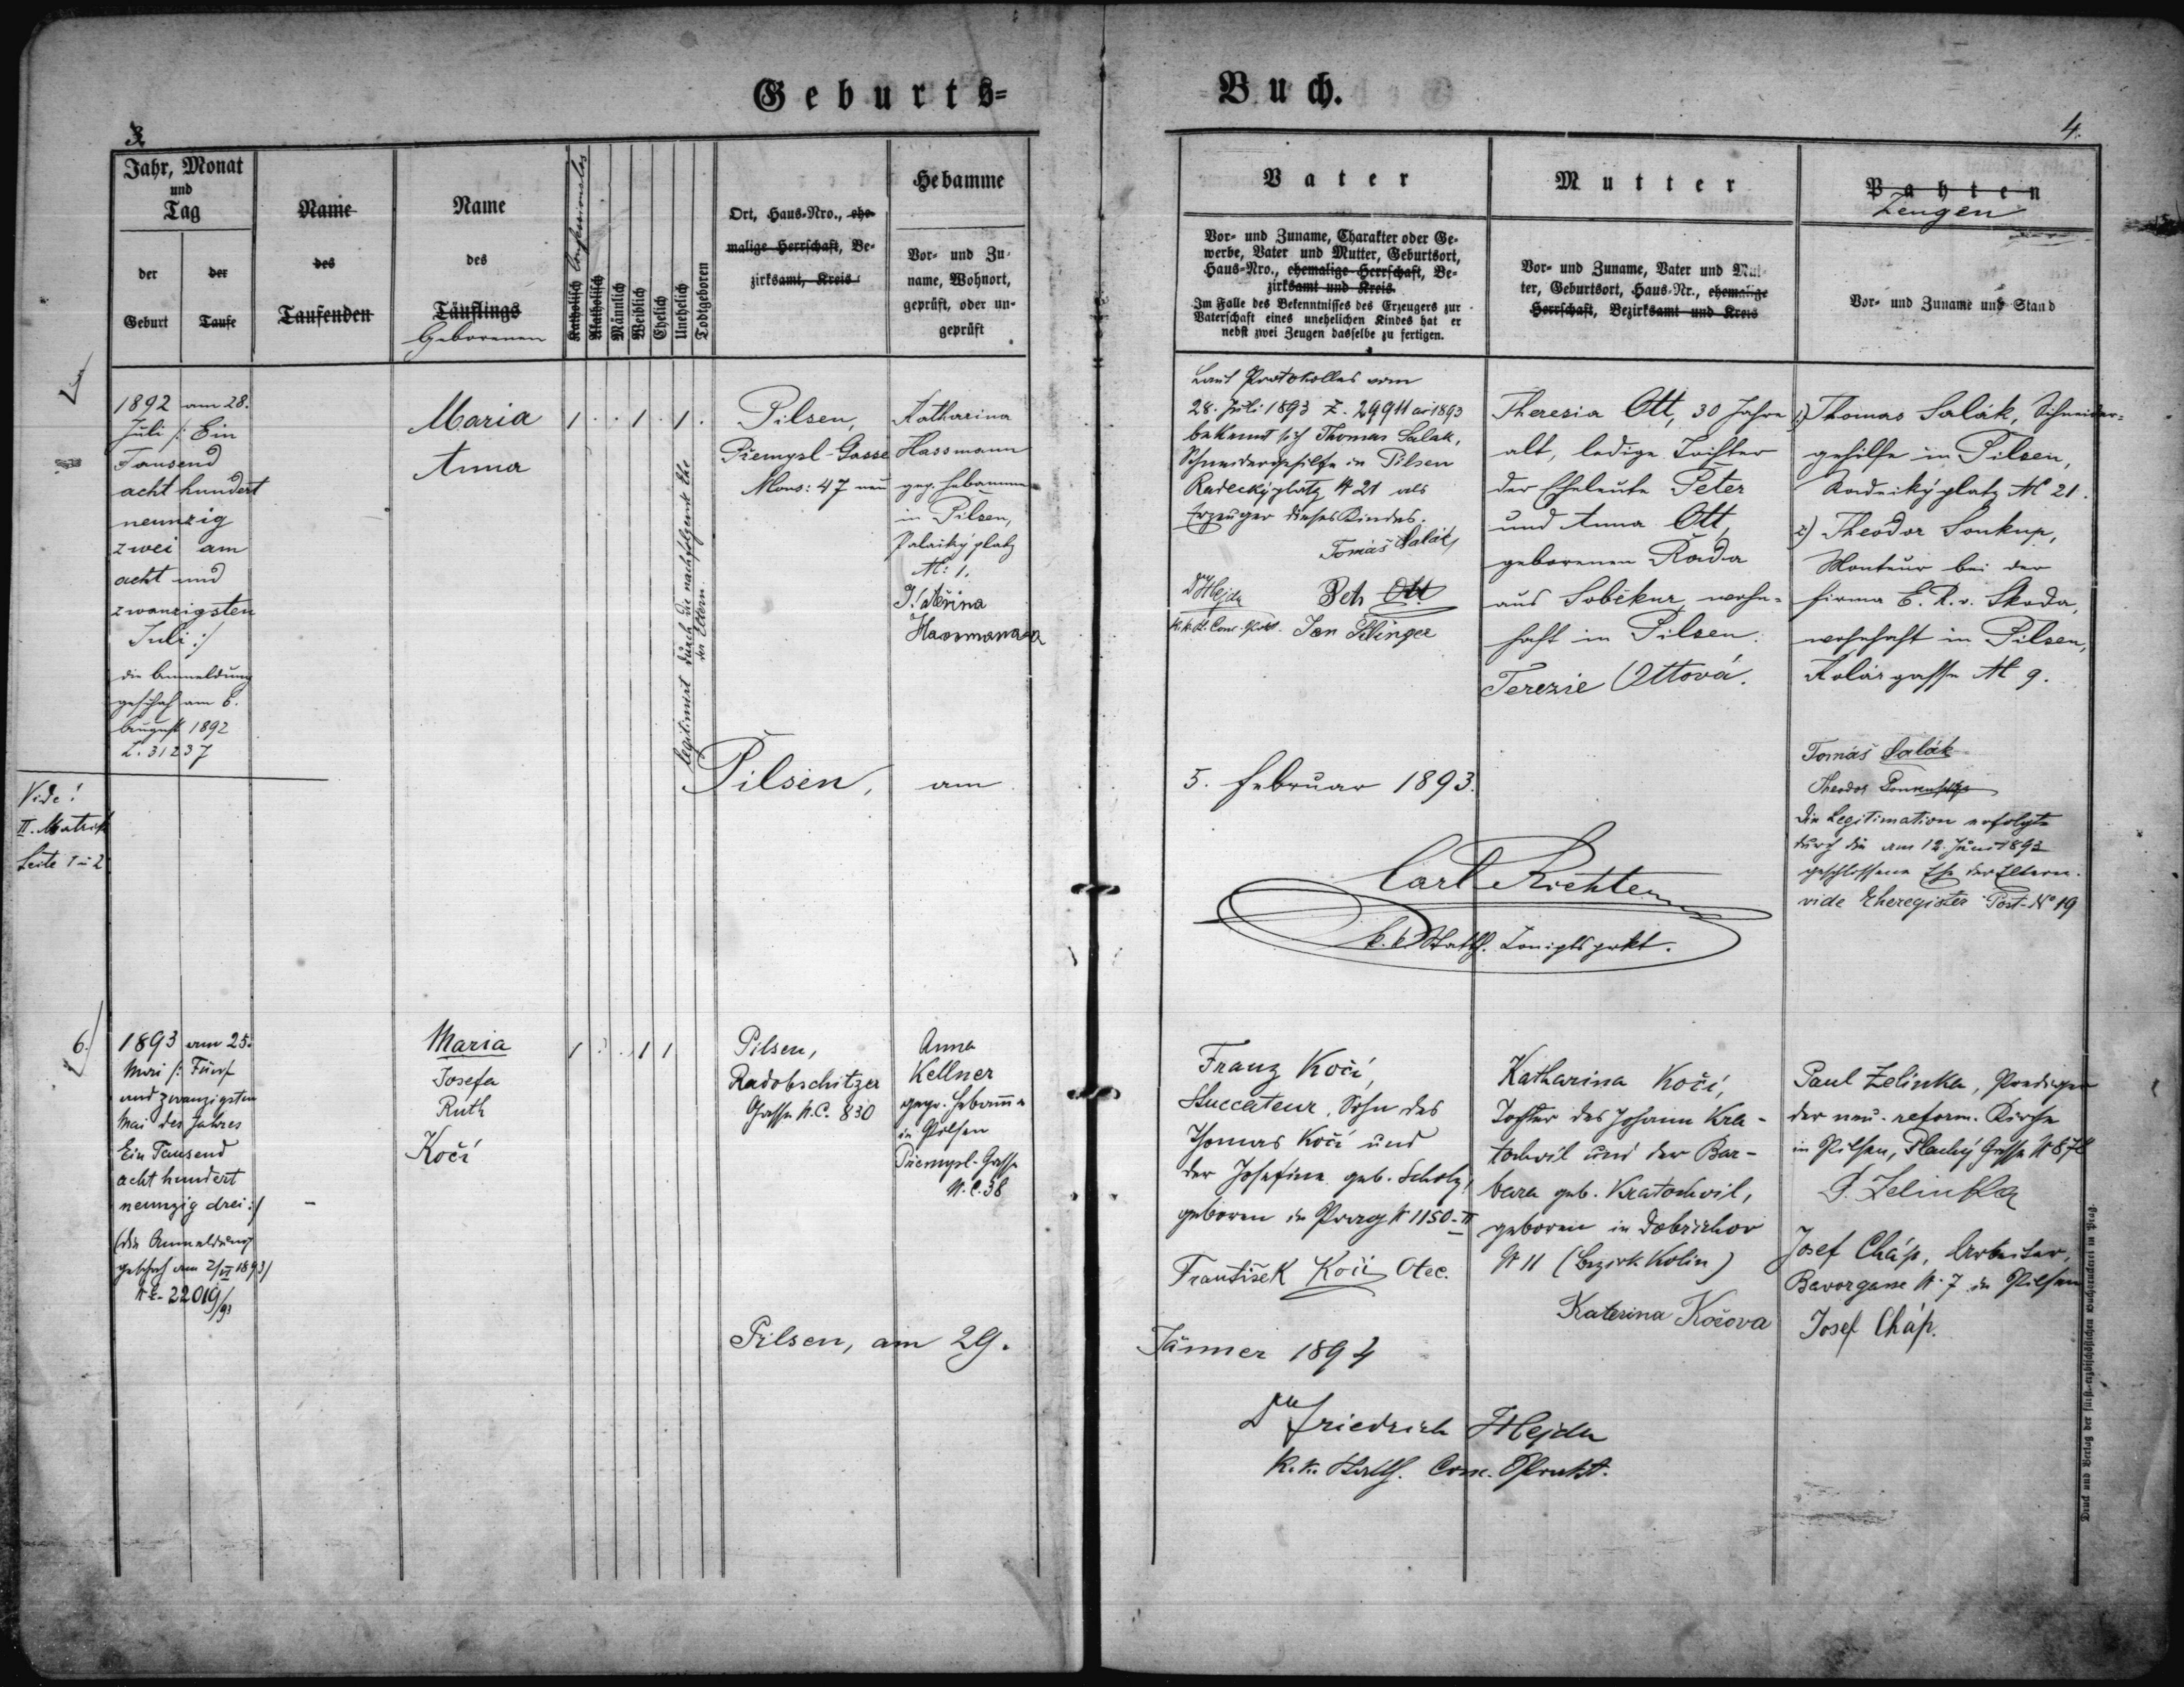 Geburts=
Buch.
3
4.
Jahr, Monat
und
Tag
der
Geburt
der
Taufe
Name
des
Taufenden
Name
des
Täuflings
Geborenen
Katholisch Confessionslos
Akatholisch
Männlich
Weiblich
Ehelich
Unehelich
Todtgeboren
Ort, Haus-Nro., ehe-
malige Herrschaft, Be-
zirksamt, Kreis
Hebamme
Vor- und Zu-
name, Wohnort,
geprüft, oder un-
geprüft
Vater
Vor- und Zuname, Charakter oder Ge-
werbe, Vater und Mutter, Geburtsort,
Haus-Nro., ehemalige Herrschaft, Be-
zirksamt und Kreis.
Im Falle des Bekenntnisses des Erzeugers zur
Vaterschaft eines unehelichen Kindes hat er
nebst zwei Zeugen dasselbe zu fertigen.
Mutter
Vor- und Zuname, Vater und Mut-
ter, Geburtsort, Haus-Nr., ehemalige
Herrschaft, Bezirksamt und Kreis
Pahten
Zeugen
Vor- und Zuname und Stand
1892 am 28.
Juli /: Ein
Tausend
acht hundert
neunzig
zwei am
acht und
zwanzigsten
Juli :/
die Anmeldung
geschah am 6.
August 1892
Z. 31237
Maria
Anna
1 . . 1 . 1 .
legitimirt durch die nachfolgende Ehe
der Eltern.
Pilsen,
Přemysl-Gasse
Nrous: 47 neu
Katharina
Hassmann
gep. Hebamme
in Pilsen,
Palacký platz
N: 1.
Kateřina
Hassmanova
Laut Protokolles vom
28. Juli 1893 Z. 29911 ai 1893
bekennt sich Thomas Salak,
Schneidergehilfe in Pilsen
Radeckýplatz N 21 als
Erzeuger dieses Kindes.
Tomáš Salák
Dr Hejda
Petr Ott
k.k. St. Conc. Prkt. Jan
Theresia Ott, 30 Jahre
alt, ledige Tochter
der Eheleute Peter
und Anna Ott,
geborenen Rada
aus Soběkur, wohn-
haft in Pilsen.
Terezie Ottová.
1) Thomas Salák, Schneider=
gehilfe in Pilsen,
Radecký platz N 21.
2) Theodor Soukup,
Monteur bei der
Firma E. R. v. Skoda,
wohnhaft in Pilsen,
Kolárgasse N 9.
Tomáš Salák
Theodor
Die Legitimation erfolgte
durch die am 12. Juni 1893
geschlossene Ehe der Eltern.
vide Eheregister Post-No 19
Vide!
II. Matrik
Seite 1 u 2
Pilsen, am
5. Februar 1893.
Carl Richter
k.k. Statth. Conzptsprkt.
6.
1893 am 25.
Mai /: Fünf
und zwanzigsten
Mai des Jahres
Ein Tausend
acht hundert
neunzig drei :/
(die Anmeldung
geschah am 2/VI 1893/
N E. 22019/93
Maria
Josefa
Ruth
Kočí
1 . . 1 1
Pilsen,
Radobschitzer
Gasse N.C. 830
Anna
Kellner
gepr. Hebamme
in Pilsen
Přemysl-Gasse
N.C. 38
Franz Kočí,
Stuccateur, Sohn des
Thomas Kočí und
der Josefine geb. Scholz,
geboren in Prag N 1150-II
František Kočí Otec.
Katharina Kočí,
Tochter des Johann Kra-
tochvil und der Bar-
bara geb. Kratochvil,
geboren in Dobřichov
N 11 (Bezirk Kolin)
Katerina Kočova
Paul Zelinka, Prediger
der neu-reform. Kirche
in Pilsen, Plachý Gasse N 872
P. Zelinka
Josef Cháp, Arbeiter,
Bavorgasse N. 7 in Pilsen
Josef Cháp.
Pilsen, am 29.
Jänner 1894
Dr. Friedrich Hejda
k.k. Statth. Conc. Prakt.
Druck und Verlag der fürst-erzbischöflichen Buchdruckerei in Prag.